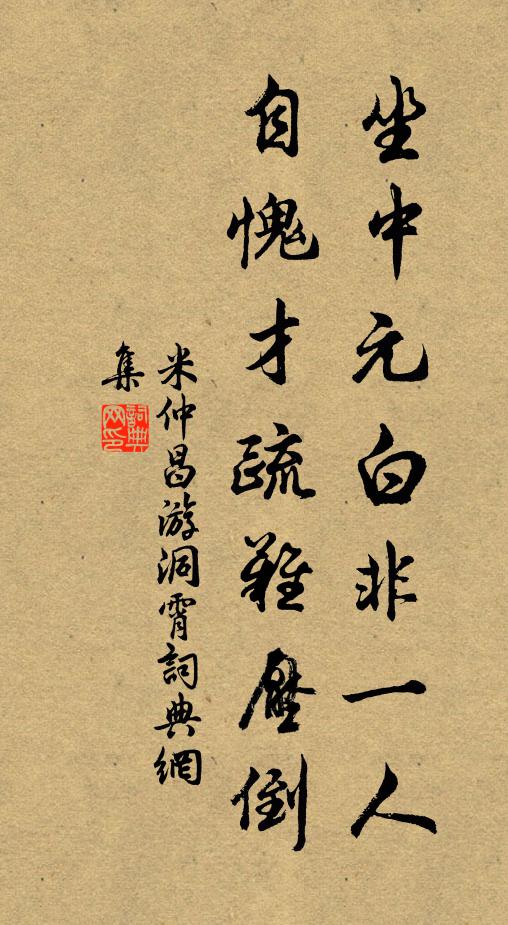 坐中元白非一人
自愧才疏難壓倒
米仲昌游洞霄詞典網
集
詞典
网印